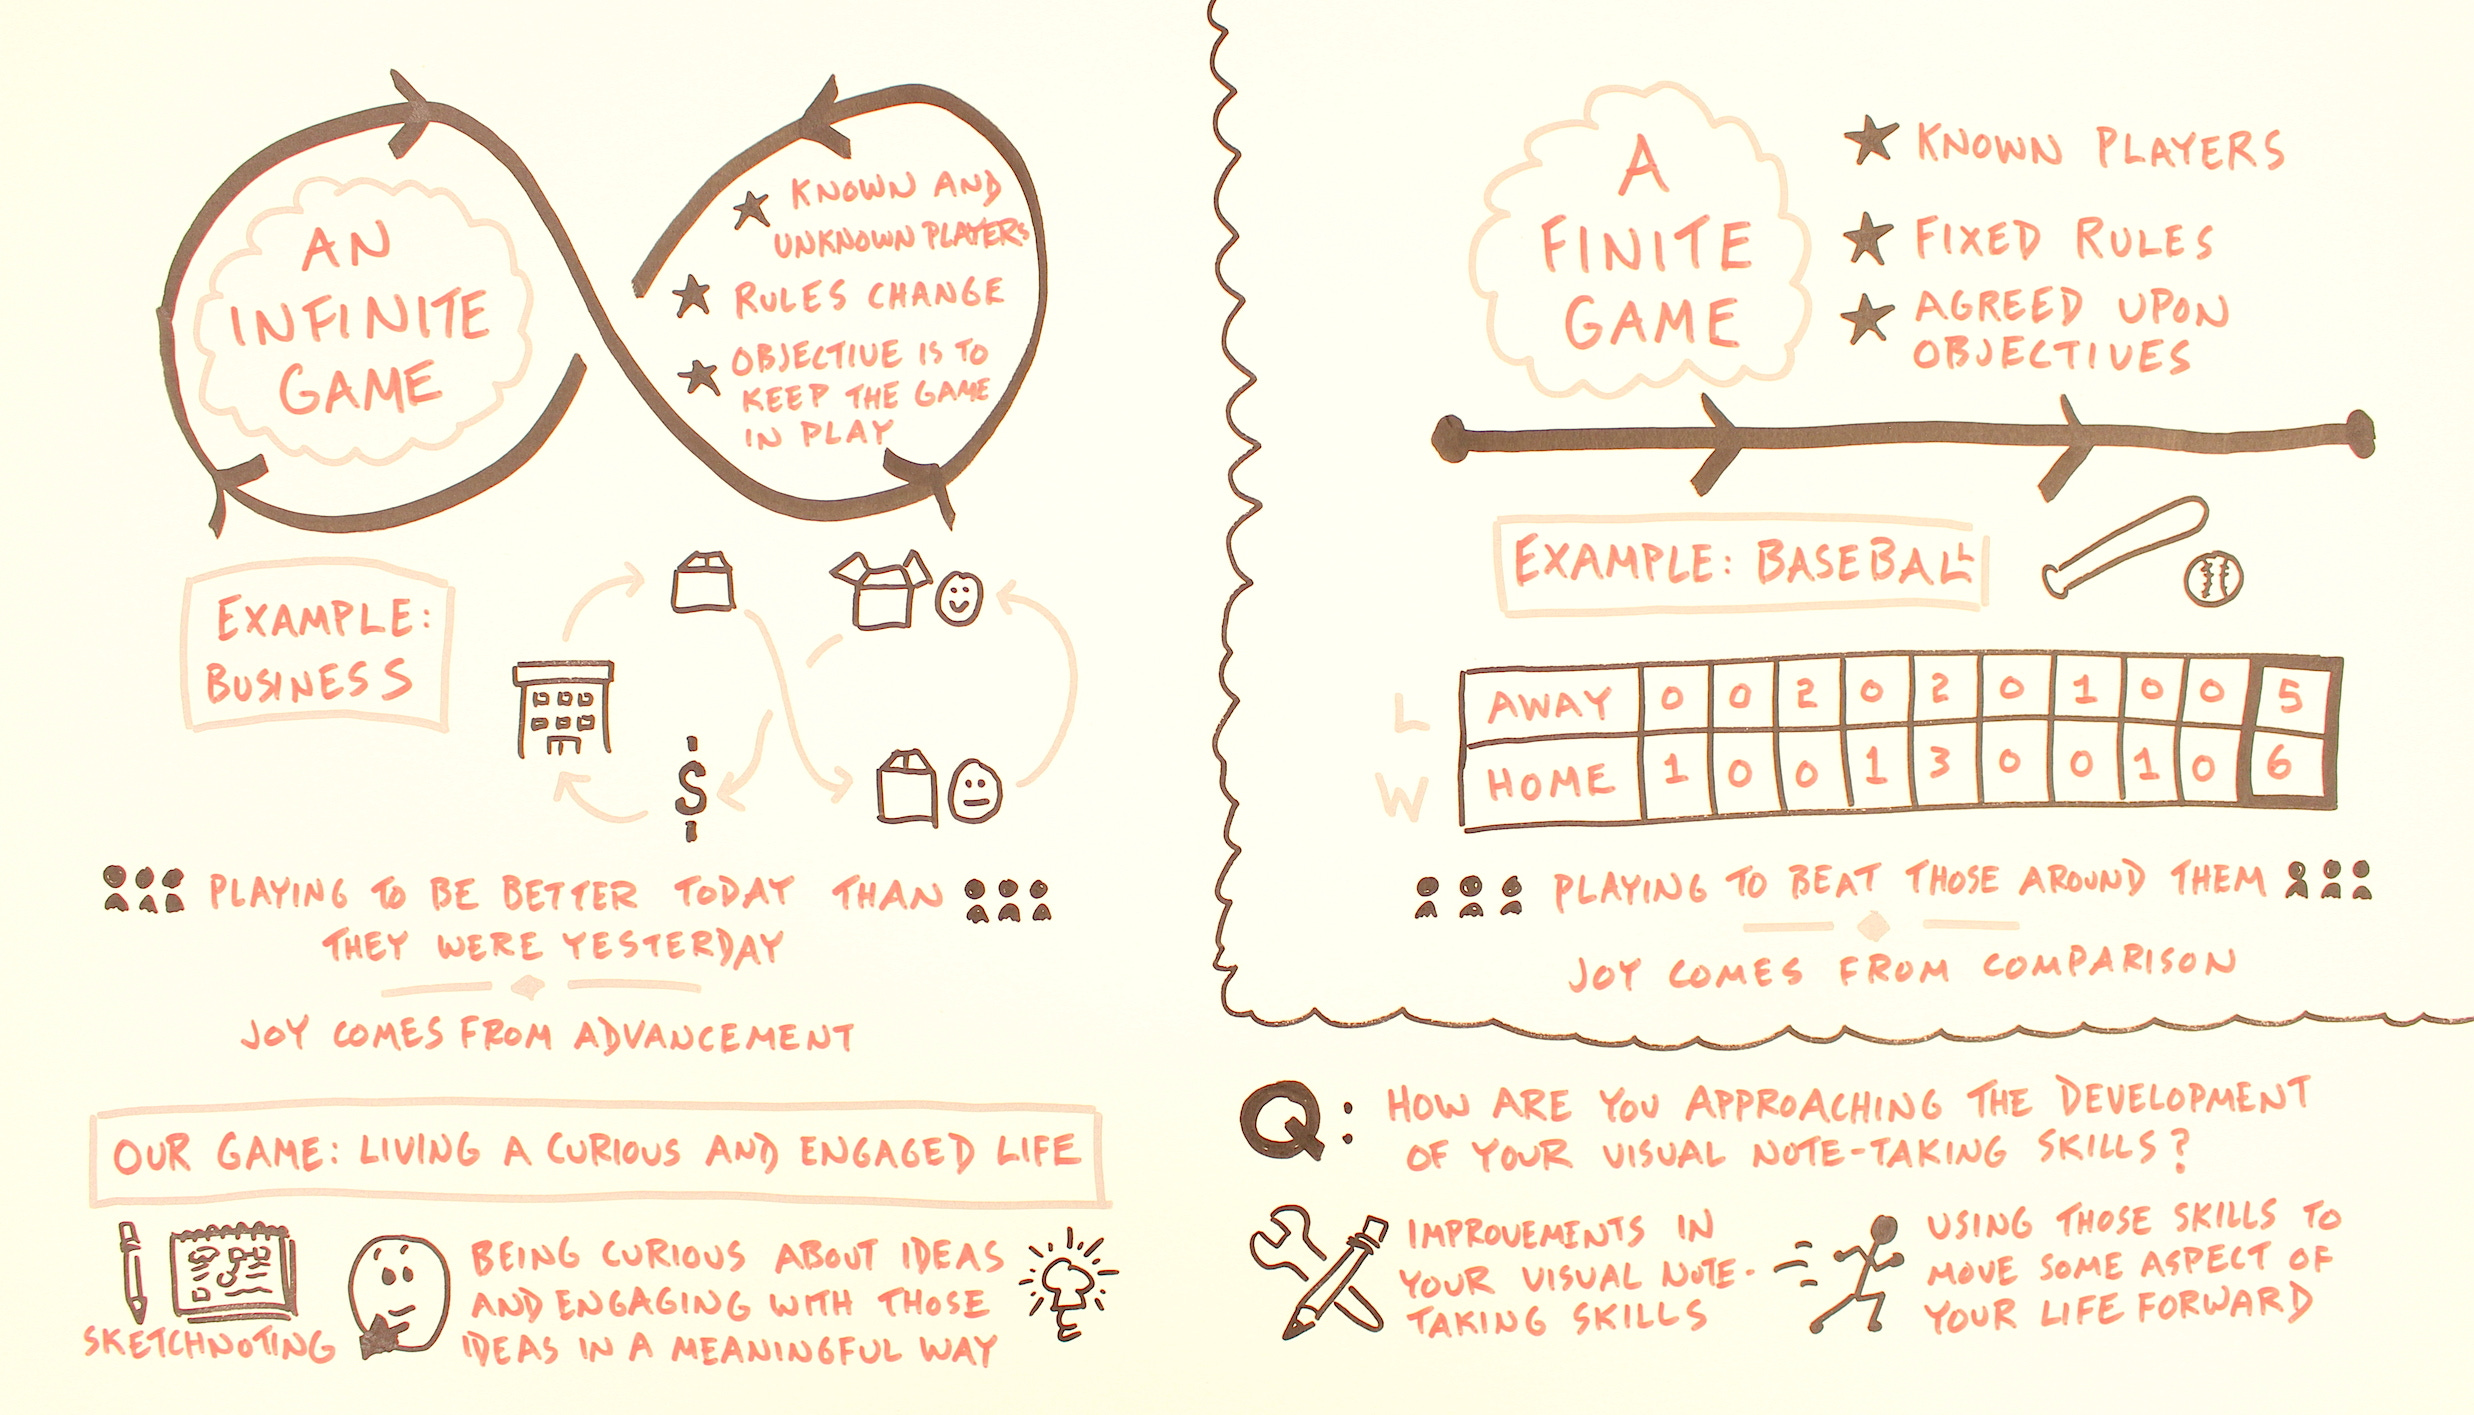 AN
INFINITE
GAME
KNOWN AND
UNKNOWN PLAYERS
RULES CHANGE
OBJECTIVE IS TO
KEEP THE GAME
IN PLAY
EXAMPLE:
BUSINESS
$
PLAYING TO BE BETTER TODAY THAN
THEY WERE YESTERDAY
JOY COMES FROM ADVANCEMENT
A
FINITE
GAME
KNOWN PLAYERS
FIXED RULES
AGREED UPON
OBJECTIVES
EXAMPLE: BASEBALL
L AWAY 0 0 2 0 2 0 1 0 0 5
W HOME 1 0 0 1 3 0 0 1 0 6
PLAYING TO BEAT THOSE AROUND THEM
JOY COMES FROM COMPARISON
OUR GAME: LIVING A CURIOUS AND ENGAGED LIFE
SKETCHNOTING
BEING CURIOUS ABOUT IDEAS
AND ENGAGING WITH THOSE
IDEAS IN A MEANINGFUL WAY
Q: HOW ARE YOU APPROACHING THE DEVELOPMENT
OF YOUR VISUAL NOTE-TAKING SKILLS?
IMPROVEMENTS IN
YOUR VISUAL NOTE-
TAKING SKILLS
USING THOSE SKILLS TO
MOVE SOME ASPECT OF
YOUR LIFE FORWARD